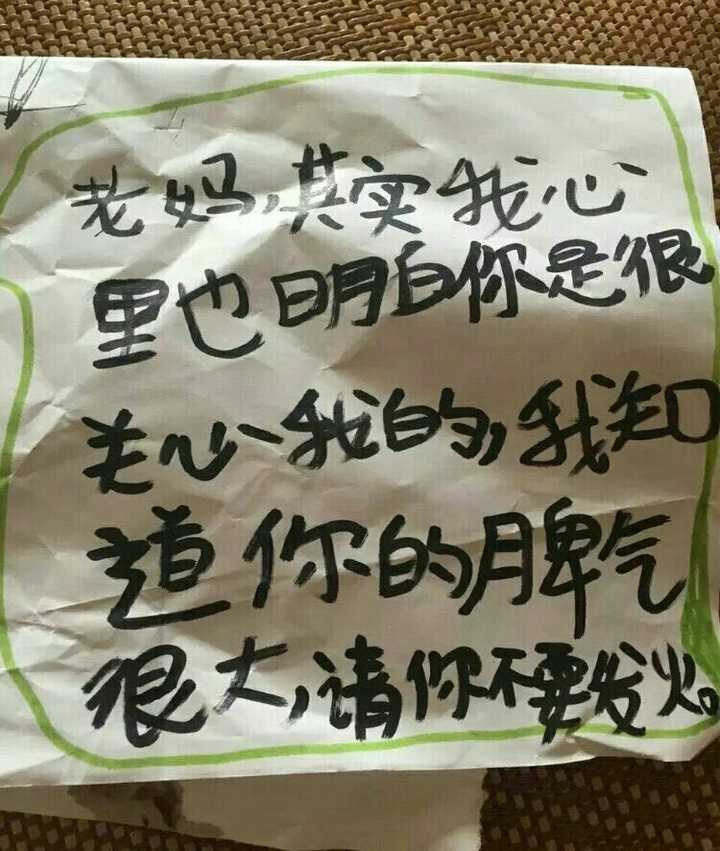 老妈,其实我心
里也明白你是很
关心我的,我知
道你的脾气
很大,请你不要发火。